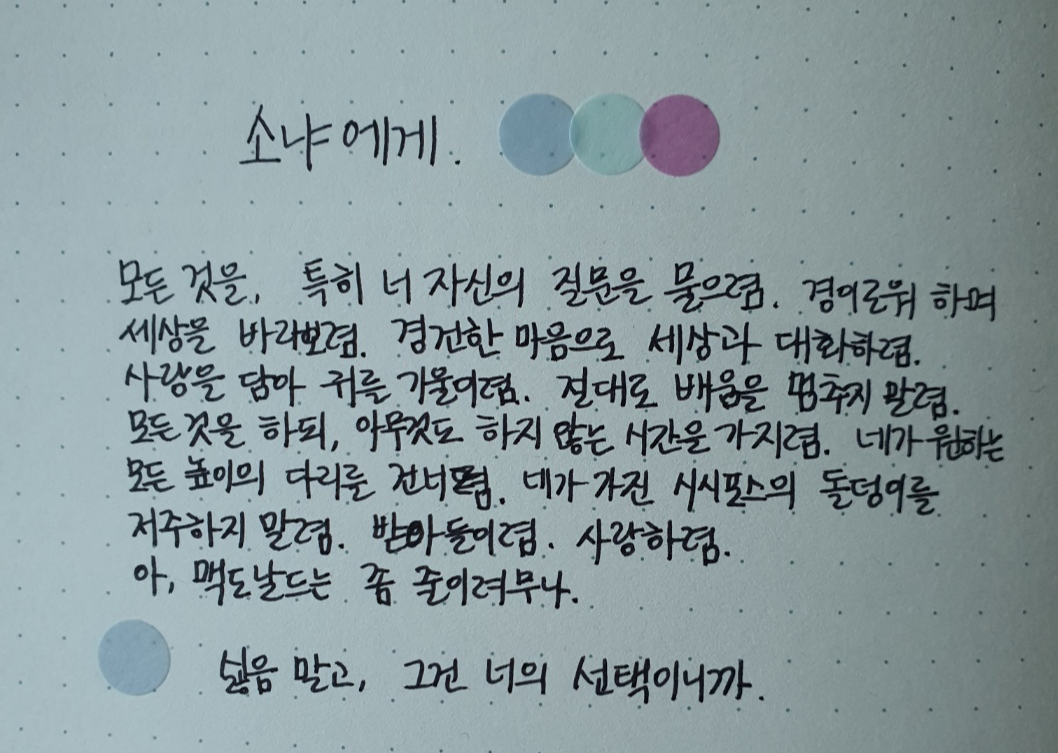 소냐에게.
모든 것을, 특히 너 자신의 질문을 물으렴. 경이로워 하며
세상을 바라보렴. 경건한 마음으로 세상과 대화하렴.
사랑을 담아 귀를 기울이렴. 절대로 배움을 멈추지 말렴.
모든 것을 하되, 아무것도 하지 않는 시간을 가지렴. 네가 원하는
모든 높이의 다리를 건너렴. 네가 가진 시시포스의 돌덩이를
저주하지 말렴. 받아들이렴. 사랑하렴.
아, 맥도날드는 좀 줄이려무나.
싫음 말고, 그건 너의 선택이니까.